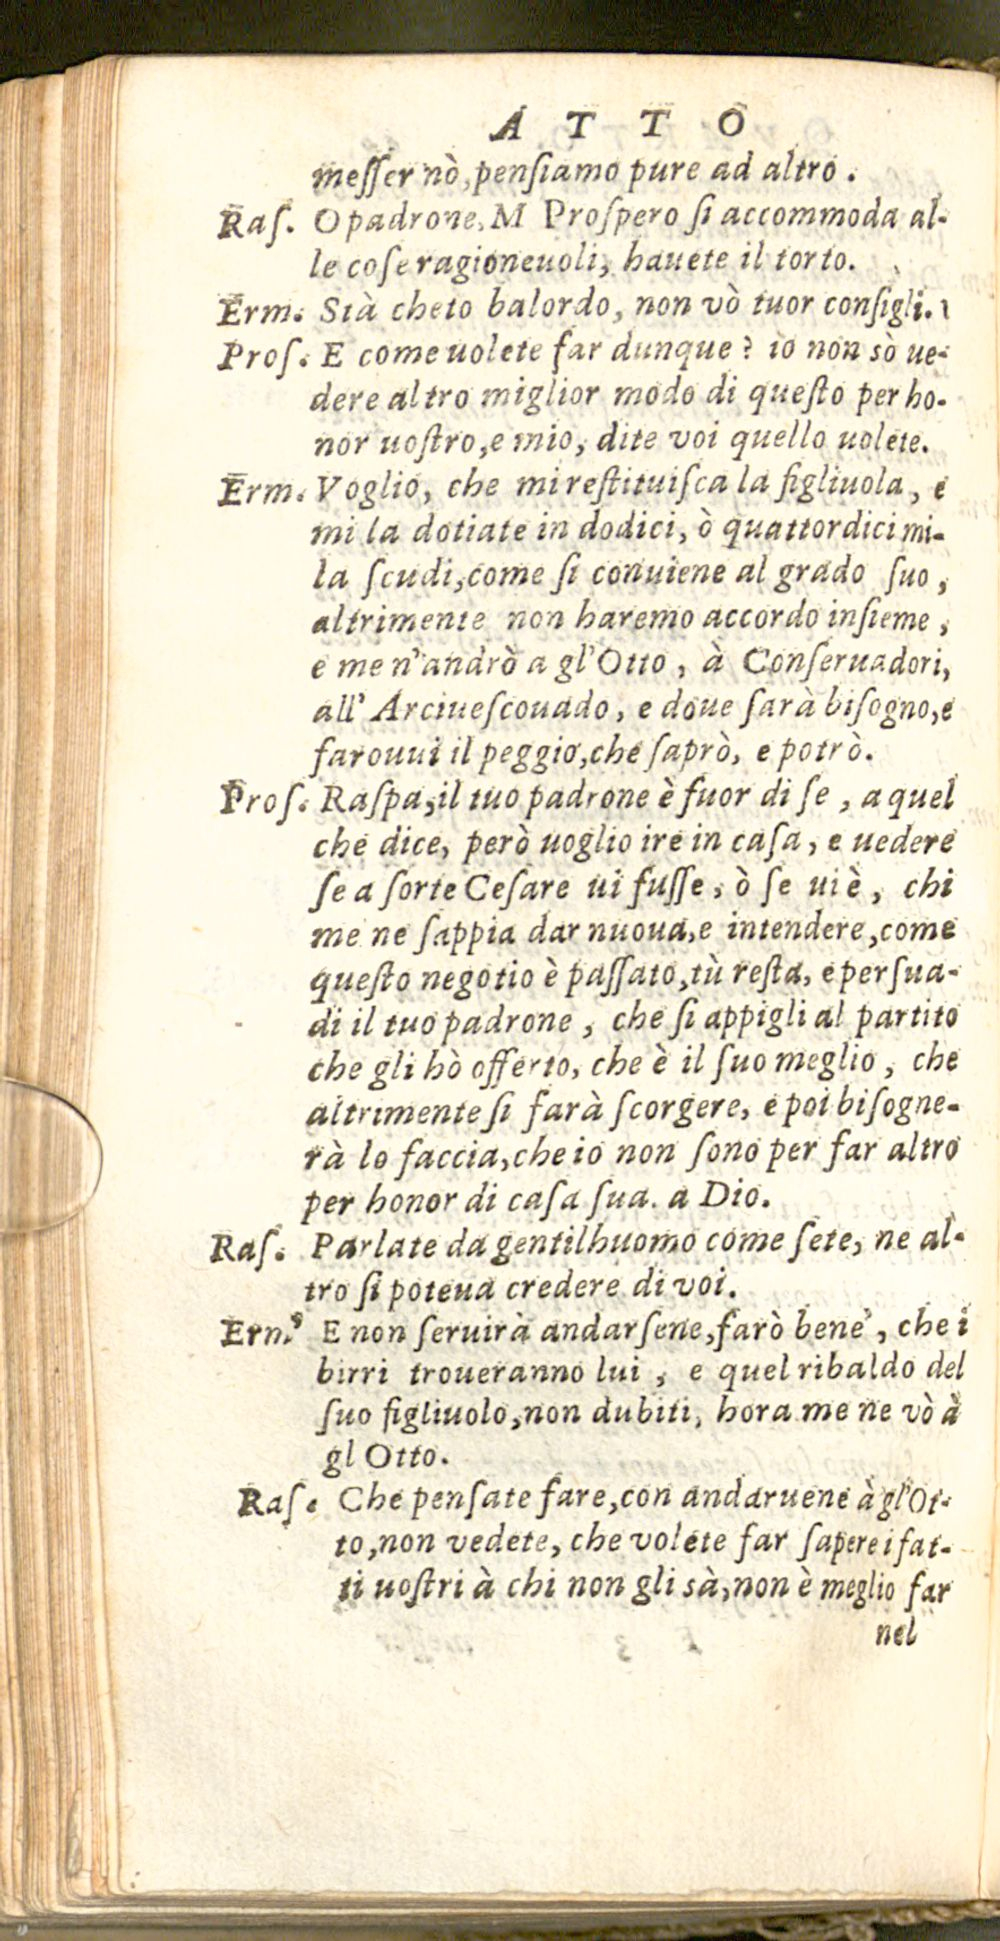 ATTO
meſſer nò, penſiamo pure ad altro.
Raſ. O padrone, M Proſpero ſi accommoda al-
le coſe ragioneuoli, hauete il torto.
Erm. Stà cheto balordo, non vò tuor conſigli.
Proſ. E come uolete far dunque? io non sò ue-
dere altro miglior modo di queſto per ho-
nor uoſtro, e mio, dite voi quello uolete.
Erm. Voglio, che mi reſtituiſca la figliuola, e
mi la dotiate in dodici, ò quattordici mi-
la ſcudi, come ſi conuiene al grado ſuo,
altrimente non haremo accordo inſieme,
e me n'andrò a gl'Otto, à Conſeruadori,
all' Arciueſcouado, e doue ſarà biſogno, e
farouui il peggio, che ſaprò, e potrò.
Proſ. Raſpa, il tuo padrone è fuor di ſe, a quel
che dice, però uoglio ire in caſa, e uedere
ſe a ſorte Ceſare ui fuſſe, ò ſe ui è, chi
me ne ſappia dar nuoua, e intendere, come
queſto negotio è paſſato, tù reſta, e perſua-
di il tuo padrone, che ſi appigli al partito
che gli hò offerto, che è il ſuo meglio, che
altrimente ſi farà ſcorgere, e poi biſogne-
rà lo faccia, che io non ſono per far altro
per honor di caſa ſua. a Dio.
Raſ. Parlate da gentilhuomo come ſete, ne al-
tro ſi poteua credere di voi.
Erm. E non ſeruirà andarſene, farò bene, che i
birri troueranno lui, e quel ribaldo del
ſuo figliuolo, non dubiti, hora me ne vò à
gl Otto.
Raſ. Che penſate fare, con andaruene à gl'Ot-
to, non vedete, che volete far ſapere i fat-
ti uoſtri à chi non gli sà, non è meglio far
nel